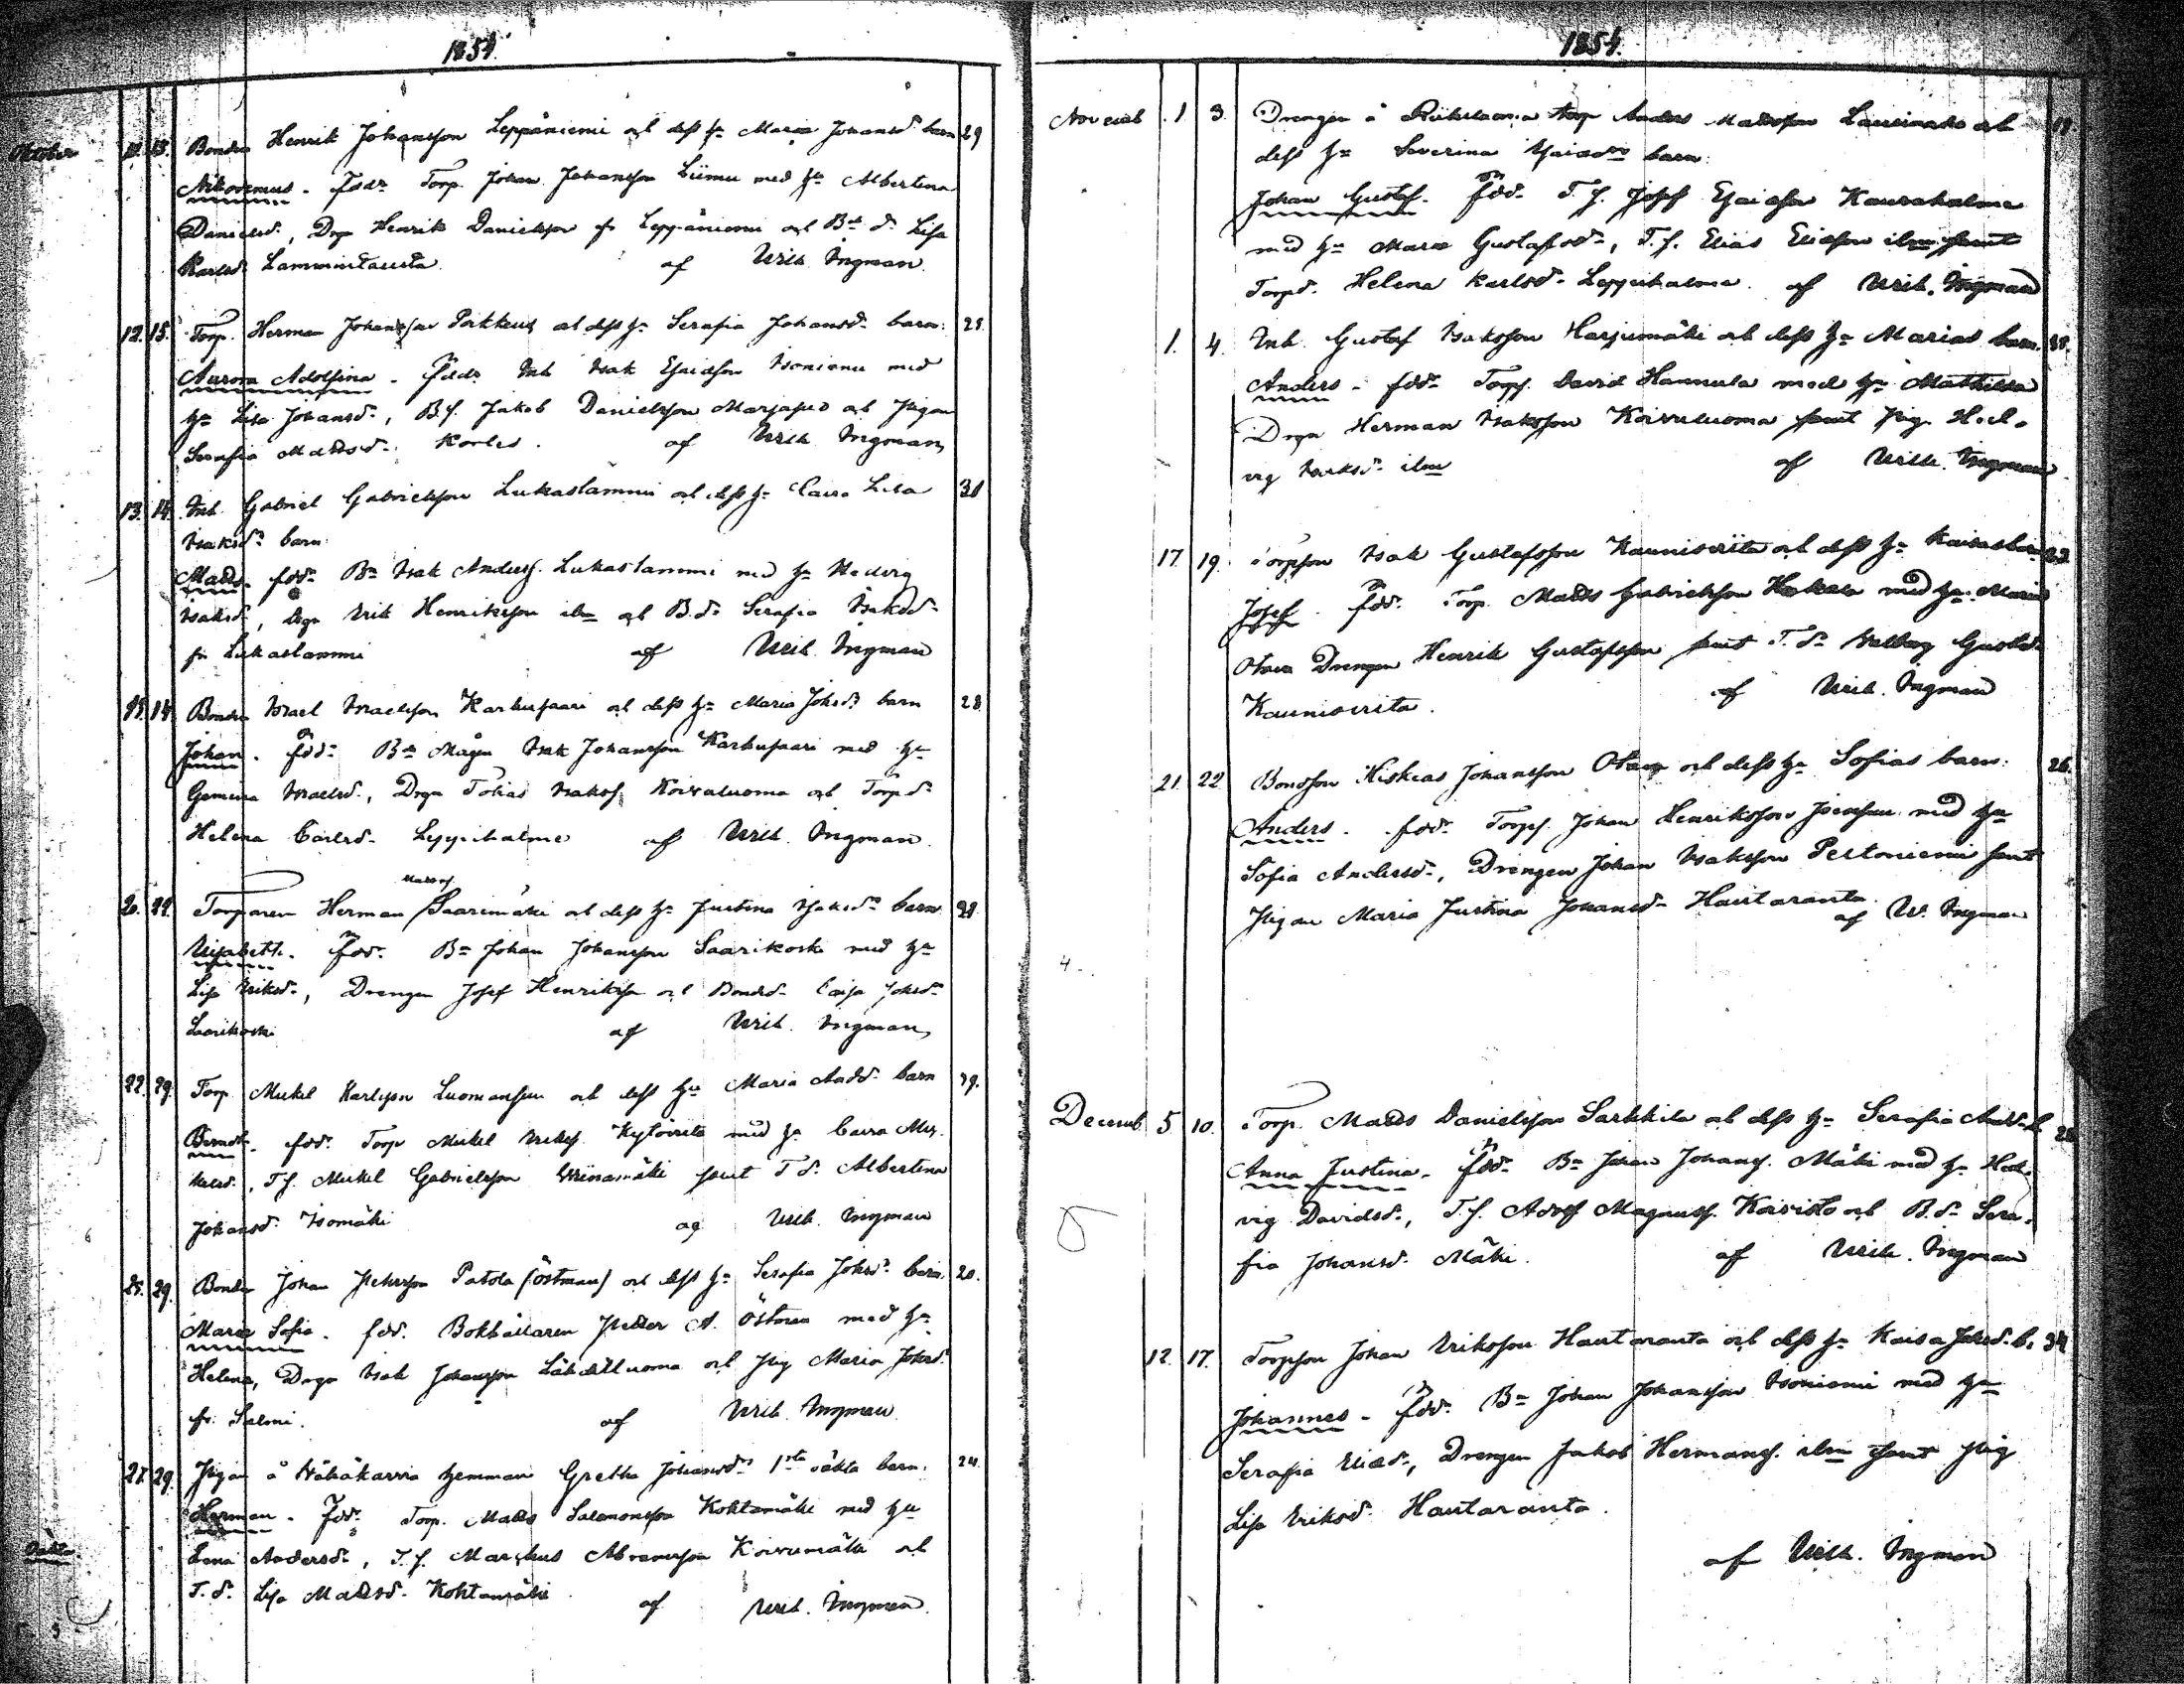 1854.
Oktober 12. 13. Bonden Henrik Johansson Leppäniemi och dess h:u Maria Johansd:s barn 29
Nikodemus. Fadr: Torp. Johan Johansson Liimu med h:u Albertina
Danielsd:r, Drgn Henrik Danielsson fr. Leppäniemi och B:de d:r Lisa
Karlsd: Lammintausta. af Wilh. Ingman.
12. 15. Torp. Herman Johansson Porkkus och dess h:u Serafia Johansd:s barn: 25.
Aurora Adolfina. Faddr. Inh. Isak Esaiasson Isoniemi med
h:u Lisa Johansd:r, B.S. Jakob Danielsson Marjapuro och Pigan
Serafia Mattsd:r af Wilh. Ingman,
13. 14. Inh. Gabriel Gabrielsson Lukaslammi och dess h:u Caisa Lisa 30
Isaksd:s barn:
Matts. fdd:r B:n Isak Anderss. Lukaslammi med h:u Hedvig
Isaksd:r, Drgn Erik Henriksson ibm och B.d:r Serafia Isaksd:r
fr. Lukaslammi af Wilh. Ingman
Bonden Israel Israelsson Karhusaari och dess h:u Maria Johsd:s barn 28.
Johan. fdd:r B:de Mågen Isak Johansson Karhusaari med h:u
Gemina Israelsd:r, Drgn Tobias Isakss. Koivuluoma och Torp.d:r
Helena Carlsd:r Leppihalme af Wilh. Ingman.
Mattss.
Torparen Herman Saarimäki och dess h:u Justina Isaksd:s barn
Elisabeth. fdd:r B:n Johan Johansson Saarikoski med h:u
Lisa Eriksd:r, Drengen Josef Henriksson och Bondd:r Caisa Johsd:r
Saarikoski af Wilh. Ingman,
22. 29. Torp. Mickel Karlsson Luomansuu och dess h:u Maria Andd:s barn 39.
fdd:r Torp. Mickel Erikss. Kytöviita med h:u Caisa Mic-
kelsd:r, T.S. Mickel Gabrielsson samt T.d:r Albertina
Johansd:r Isomäki af Wilh. Ingman
25. 29. Bonden Johan Pehrsson Patola (Östman) och dess h:u Serafia Johsd:s barn. 20.
Maria Sofia. fdd:r Bokhållaren Petter A. Östman med h:u
Helena, Drgn Isak Johansson Lähdeluoma och Pig. Maria Johsd:r
fr. Salmi. af Wilh. Ingman
27. 29. Pigan å Vähäkarvia hemman Gretha Johansd:s 1sta oäkta barn. 24.
Herman. fdd:r Torp. Matts Salomonsson Kohtamäki med h:u
Lena Andersd:r, T.S. Marckus Abramsson Koivumäki och
Oäkta. T.d:r Lisa Mattsd:r Kohtamäki af Wilh. Ingman.
1854.
Novemb. 1 3. Drengen å torp Anders Mattsson och
dess h:u Severina Esaiæd:s barn:
Johan Gustaf. fdd:r T.S. Josef Esaiasson Kaurahalme
med h:u Maria Gustafsd:r, T.S. Elias Eliasson ibm samt
Torpd:r Helena Karlsd:r Leppihalme. af Wilh. Ingman
1. 4. Inh. Gustaf Isaksson Harjumäki och dess h:u Marias barn.
Anders. fdd:r Torps. David Hannula med h:u Mathilda
Drgn Herman Isaksson Koivuluoma samt Pig. Hed-
vig Isaksd:r ibm af Wilh. Ingman
17. 19. Torpson Isak Gustafsson Kaunisviita och dess h:u Kaisas barn
Josef. fdd:r Torp. Matts Gabrielsson Hakala med h:u Maria
Drengen Henrik Gustafsson samt T.d:r Walborg Gustsd:r
Kaunisviita. af Wilh. Ingman
21. 22 Bondson Hiskias Johansson och dess h:u Sofias barn: 26.
Anders. fdd:r Torps. Johan Henriksson med h:u
Sofia Andersd:r, Drengen Johan Isaksson Peltoniemi samt
Pigan Maria Justina Johansd:r Hautaranta. af W. Ingman
4.
Decemb. 5 10. Torp. Matts Danielsson Sarkkila och dess h:u Serafia Andd:s b.
Anna Justina. fdd:r B:n Johan Johanss. Mäki med h:u Hed-
vig Davidsd:r, T.S. Adolf Magnuss. Koivisto och B.d:r Sera-
fia Johansd:r Mäki. af Wilh. Ingman
12. 17. Torpson Johan Eriksson Hautaranta och dess h:u Kaisa Johsd:s b. 34
Johannes. fdd:r B:n Johan Johansson Isoniemi med h:u
Serafia Eliæd:r, Drengen Jakob Hermanss. ibm samt Pig.
Lisa Eriksd:r Hautaranta.
af Wilh. Ingman